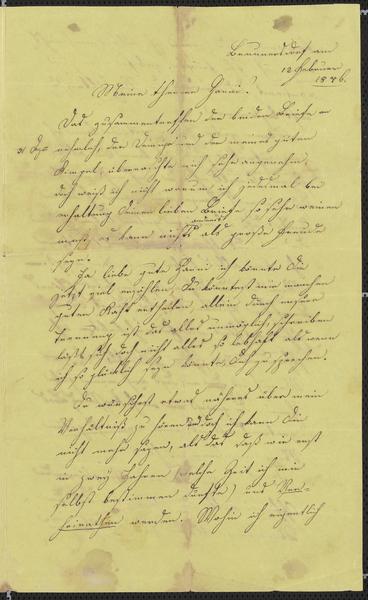 Braunersdorf am
12 Februar
1876.
Meine theuere Hanni!
Das zusammentreffen der beiden Briefe
nehmlich, der Deinige und der meines guten
überraschte mich sehr angenehm,
doch weiß ich nicht warum ich jedesmal bei
erhaltung Deiner lieben Briefe so sehr weinen
muß, es kann nichts anderes als große Freude
sein.
Ja liebe gute Hanni ich könnte Dir
jetzt viel erzählen, Du könntest mir manchen
guten Rath ertheilen allein durch unsere
Trennung ist das alles unmöglich, schreiben
läßt sich doch nicht alles so lebhaft als wenn
ich so glücklich sein könnte, Dich zu sprechen.
Du wünschest etwas näheres über mein
Verhältniß zu hören, doch ich kann Dir
nicht mehr sagen, als das daß wir erst
in zwey Jahren (welche Zeit ich mir
selbst bestimmen durfte) uns Ver-
heirathen werden. Wohin ich eigentlich